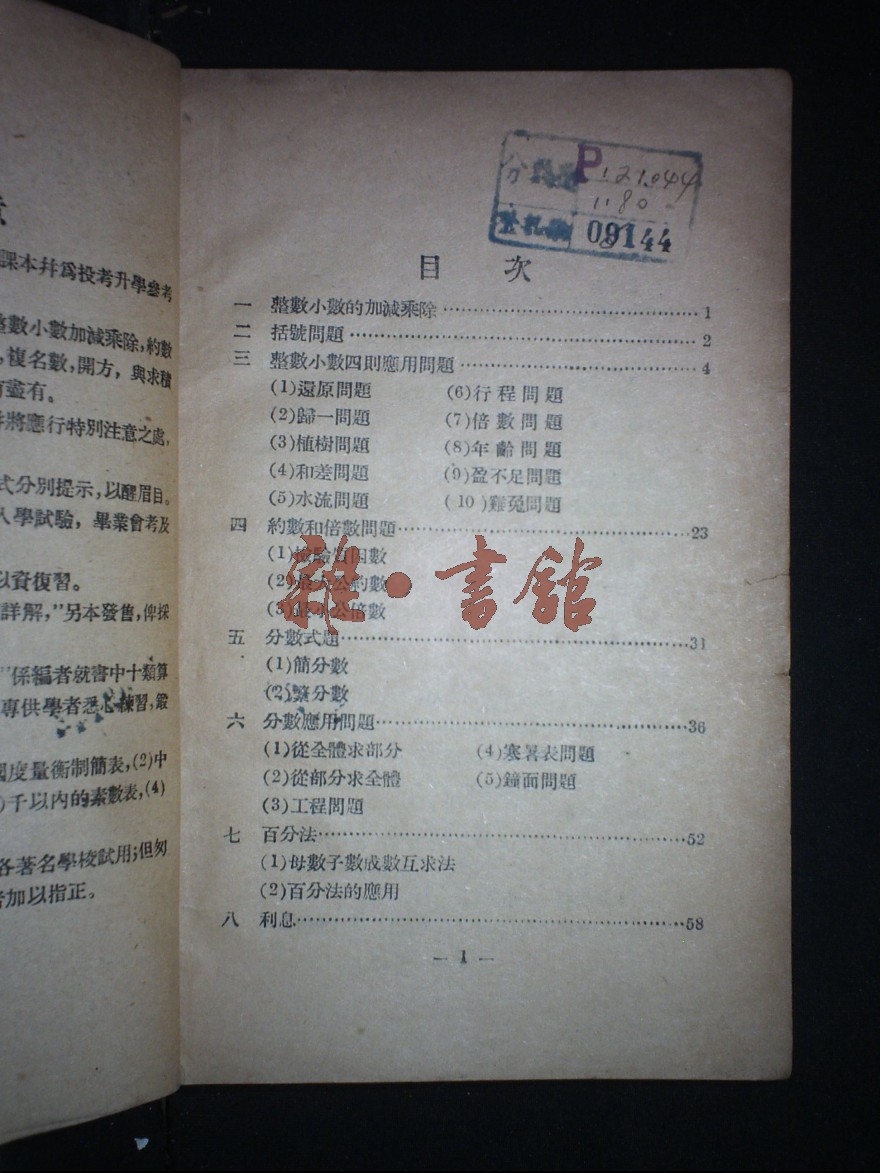 課本幷爲投考升學參考
整數小數加減乘除,約數
,複名數,開方,與求積
有盡有。
幷將應行特別注意之處,
式分別提示,以醒眉目。
入學試驗,畢業會考及
以資復習。
詳解,"另本發售,俾採
"係編者就書中十類算
專供學者悉心練習,鍛
國度量衡制簡表,(2)中
)千以內的素數表,(4)
各著名學校試用;但匆
者加以指正。
P
121.044
1180
09144
目 次
一 整數小數的加減乘除 1
二 括號問題 2
三 整數小數四則應用問題 4
(1)還原問題 (6)行程問題
(2)歸一問題 (7)倍數問題
(3)植樹問題 (8)年齡問題
(4)和差問題 (9)盈不足問題
(5)水流問題 (10)雞兔問題
四 約數和倍數問題 23
(1)檢驗質因數
(2)最大公約數
(3)最小公倍數
雜·書館
五 分數式題 31
(1)簡分數
(2)繁分數
六 分數應用問題 36
(1)從全體求部分 (4)寒暑表問題
(2)從部分求全體 (5)鐘面問題
(3)工程問題
七 百分法 52
(1)母數子數成數互求法
(2)百分法的應用
八 利息 58
— 1 —